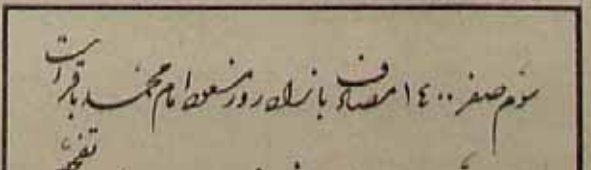 سوم صفر ۱۴۰۰ مصادف با زادروز مسعود امام محمد باقر است